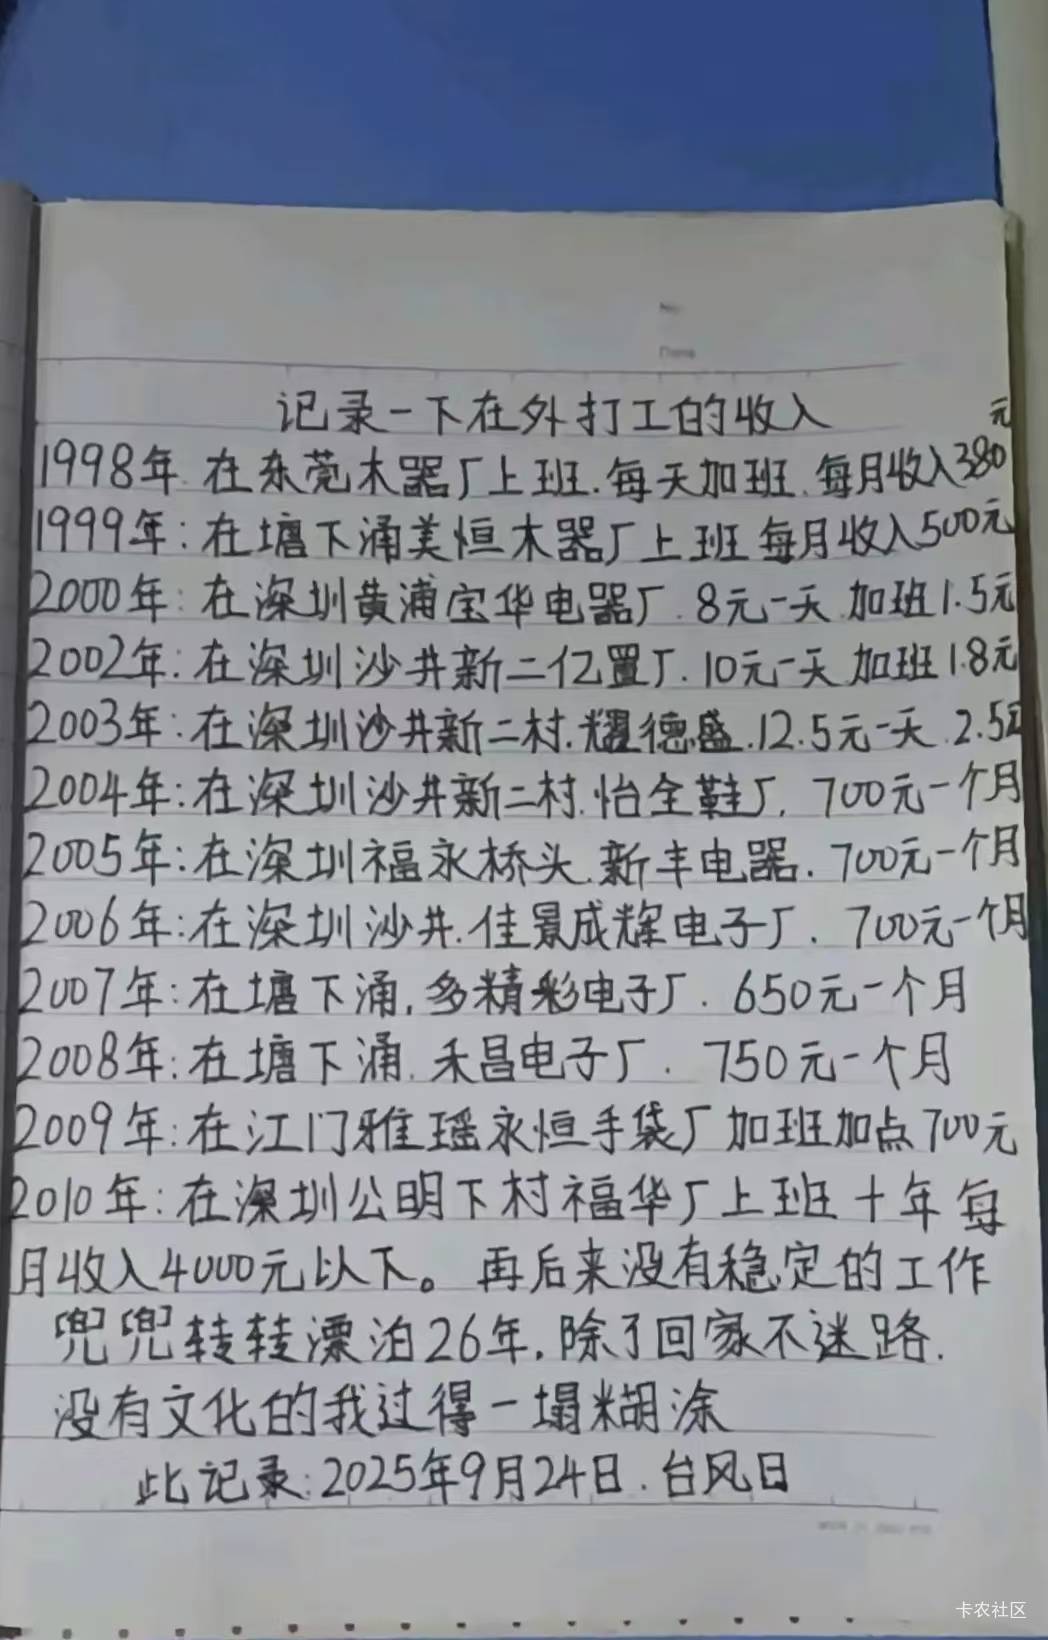 记录一下在外打工的收入
1998年.在东莞木器厂上班.每天加班.每月收入380元
1999年:在塘下涌美恒木器厂上班每月收入500元
2000年:在深圳黄浦宝华电器厂.8元一天.加班1.5元
2002年:在深圳沙井新二亿置厂.10元一天.加班1.8元
2003年:在深圳沙井新二村.耀德盛.12.5元一天.2.5元
2004年:在深圳沙井新二村.怡全鞋厂.700元一个月
2005年:在深圳福永桥头.新丰电器.700元一个月
2006年:在深圳沙井.佳景成辉电子厂.700元一个月
2007年:在塘下涌,多精彩电子厂.650元一个月
2008年:在塘下涌.禾昌电子厂.750元一个月
2009年:在江门雅瑶永恒手袋厂加班加点700元
2010年:在深圳公明下村福华厂上班十年每
月收入4000元以下。再后来没有稳定的工作
兜兜转转漂泊26年,除了回家不迷路.
没有文化的我过得一塌糊涂
此记录:2025年9月24日.台风日
卡农社区